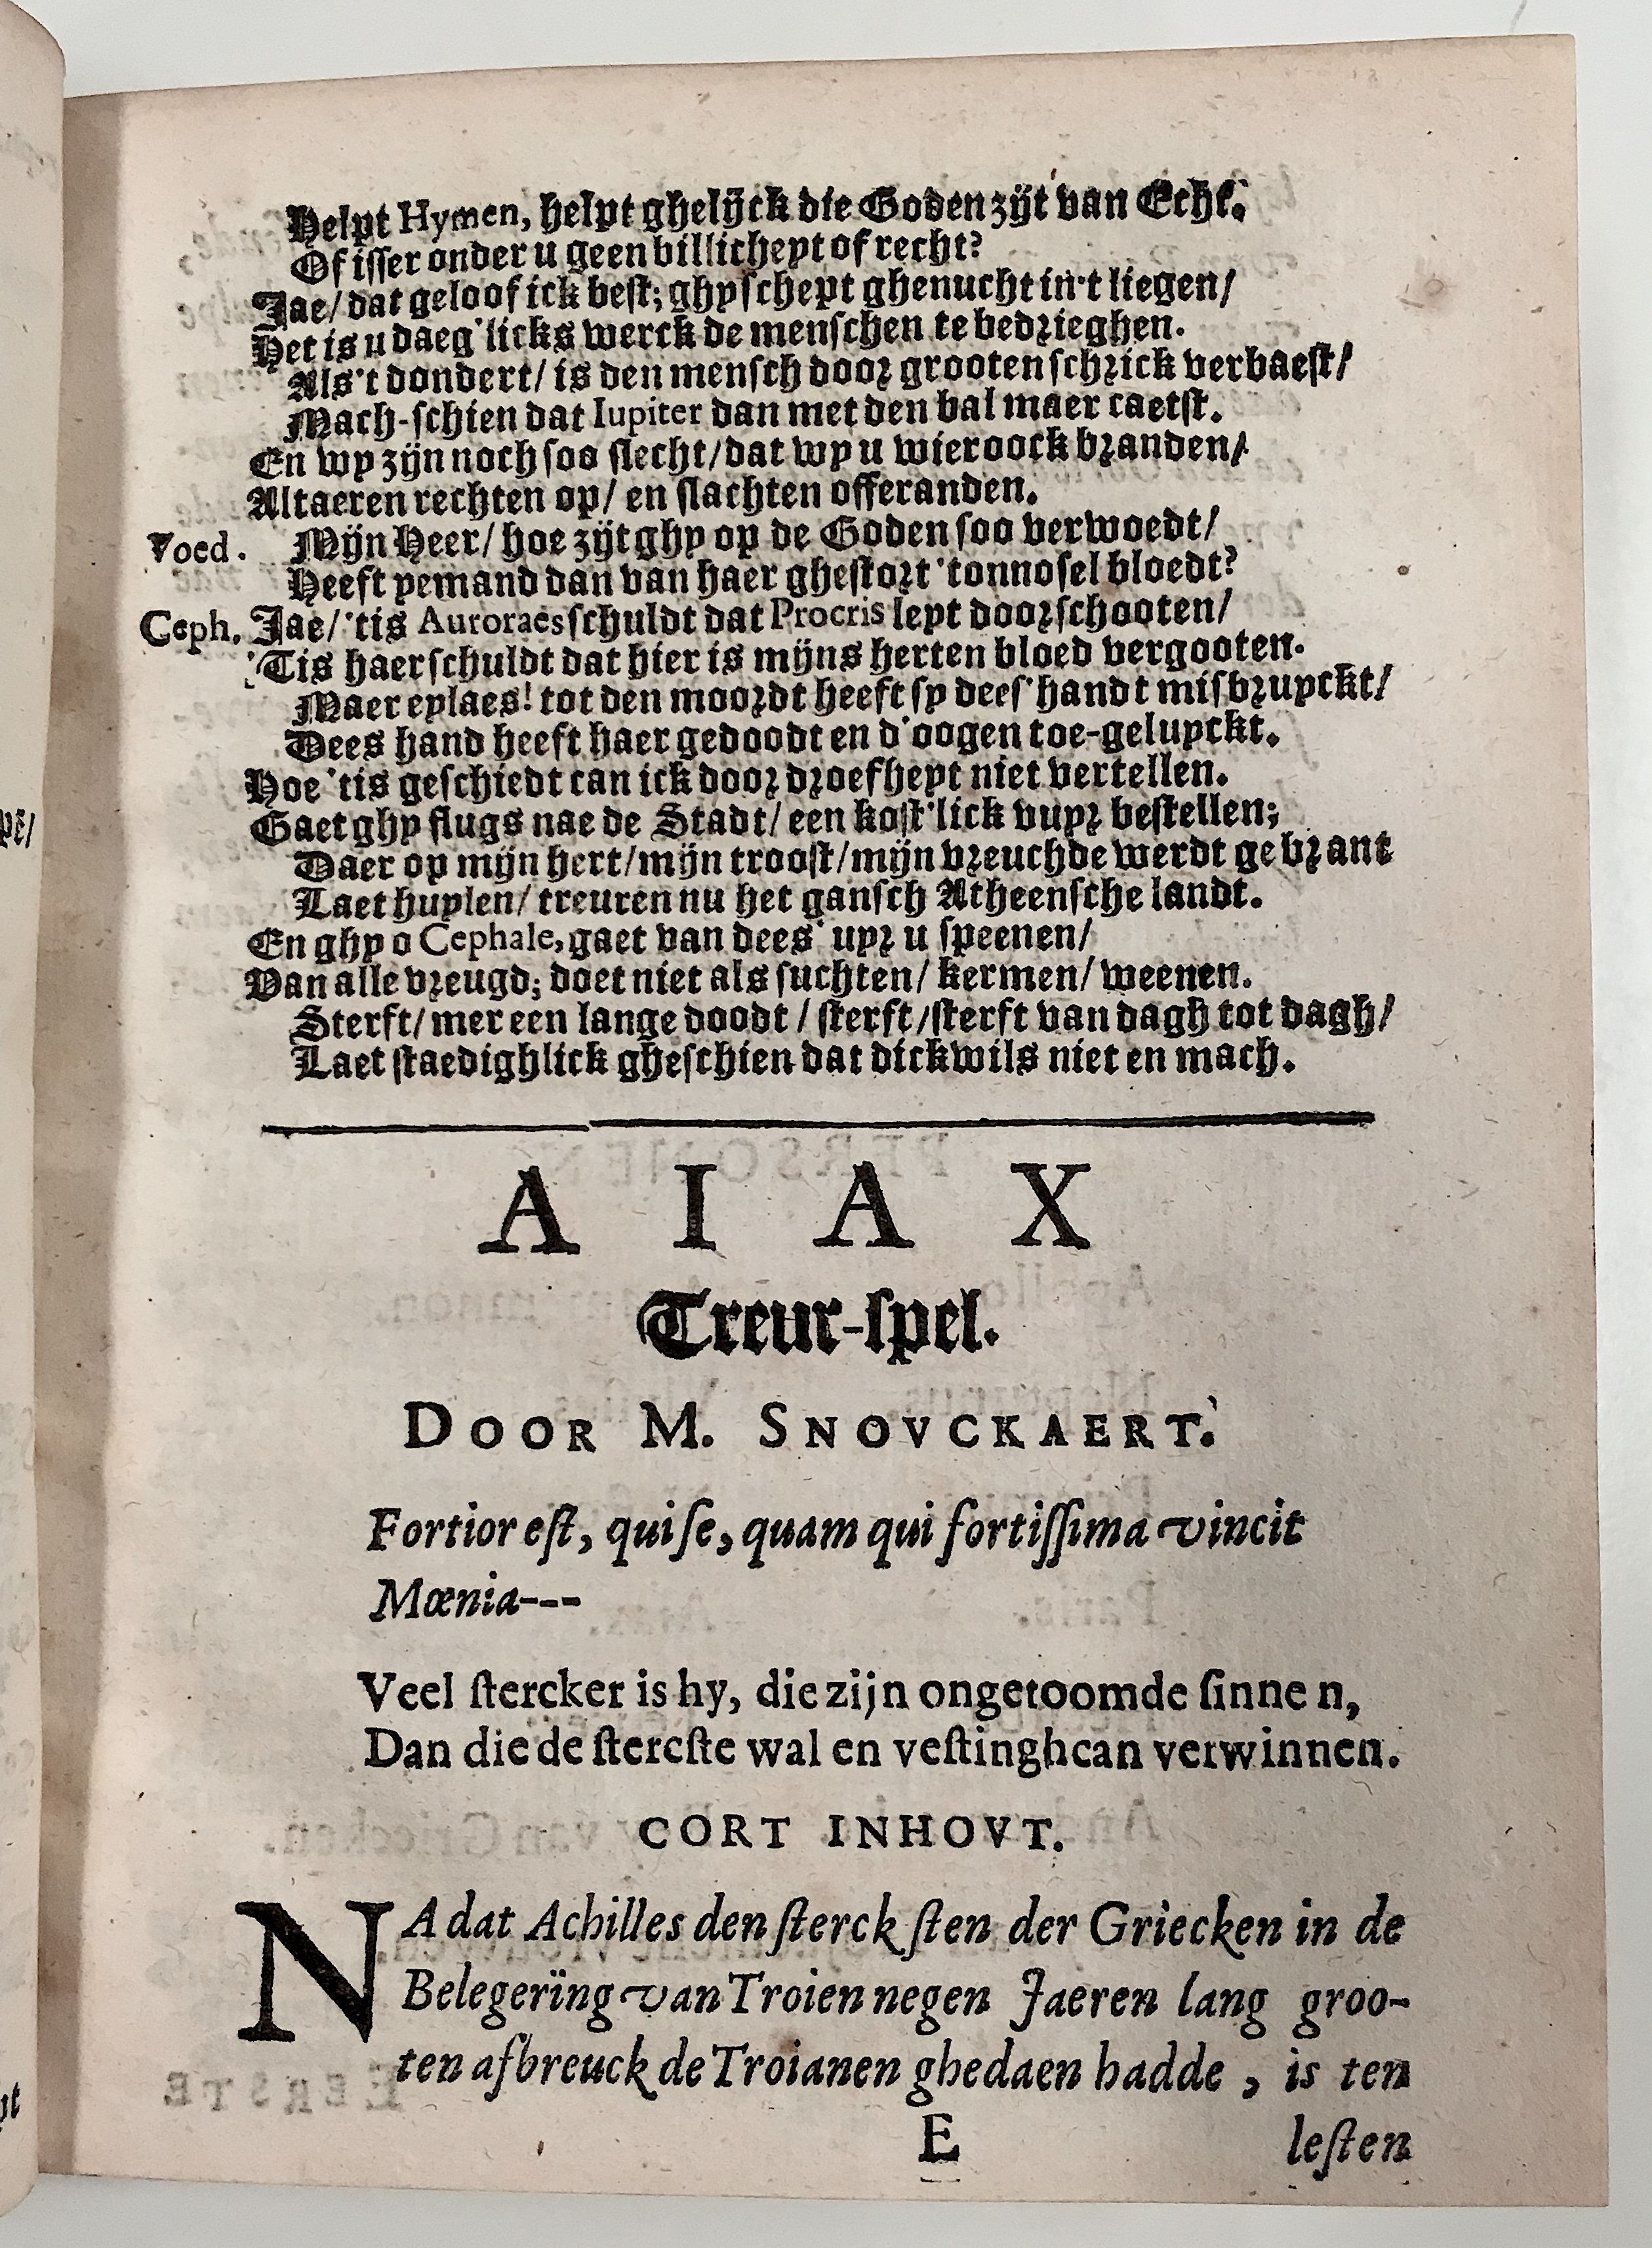 Helpt Hymen, helpt ghelijck die Goden zijt van Echt.
Of isser onder u geen billicheyt of recht?
Jae/ dat geloof ick best; ghy schept ghenucht in't liegen/
Het is u daeg'licks werck de menschen te bedrieghen.
Als't dondert/ is den mensch door grooten schrick verbaest/
Mach-schien dat Iupiter dan met den bal maer caetst.
En wy zijn noch soo slecht/ dat wy u wieroock branden/
Altaeren rechten op/ en slachten offeranden.
Voed. Mijn Heer/ hoe zijt ghy op de Goden soo verwoedt/
Heeft yemand dan van haer ghestort 'tonnosel bloedt?
Ceph. Jae/ 'tis Auroraes schuldt dat Procris leyt doorschooten/
'Tis haer schuldt dat hier is mijns herten bloed vergooten.
Maer eylaes! tot den moordt heeft sy dees' handt misbruyckt/
Dees hand heeft haer gedoodt en d'oogen toe-geluyckt.
Hoe 'tis geschiedt can ick door droefheyt niet vertellen.
Gaet ghy flugs nae de Stadt/ een kost'lick vuyr bestellen;
Daer op mijn hert/ mijn troost/ mijn vreuchde werdt gebrant
Laet huylen/ treuren nu het gansch Atheensche landt.
En ghy o Cephale, gaet van dees' uyr u speenen/
Van alle vreugd; doet niet als suchten/ kermen/ weenen.
Sterft/ met een lange doodt/ sterft/ sterft van dagh tot dagh/
Laet staedighlick gheschien dat dickwils niet en mach.
AIAX
Treur-spel.
DOOR M. SNOVCKAERT.
Fortior est, qui se, quam qui fortissima vincit
Mœnia---
Veel stercker is hy, die zijn ongetoomde sinnen,
Dan die de stercste wal en vestingh can verwinnen.
CORT INHOVT.
NA dat Achilles den sterck sten der Griecken in de
Belegering van Troien negen Jaeren lang groo-
ten afbreuck de Troianen ghedaen hadde, is ten
E lesten